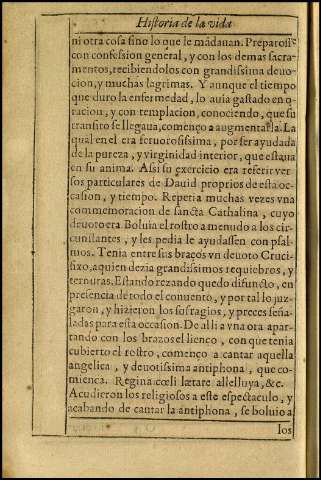 Historia de la vida
ni otra cosa sino lo que le mãdauan. Preparose
con confession general, y con los demas sacra-
mentos, recibiendolos con grandissima deuo-
cion, y muchas lagrimas. Y aunque el tiempo
que duro la enfermedad, lo auia gastado en o-
racion, y con templacion, conociendo, que su
transito se llegaua, començo a augmentalla. La
qual en el era feruotosissima, por ser ayudada
de la pureza, y virginidad interior, que estaua
en su anima. Assi su exercicio era referir ver-
sos particulares de Dauid proprios de esta oc-
casion, y tiempo. Repetia muchas vezes vna
commemoracion de sancta Cathalina, cuyo
deuoto era. Boluia el rostro a menudo a los cir-
cunstantes, y les pedia le ayudassen con psal-
mos. Tenia entre sus braços vn deuoto Cruci-
fixo, a quien dezia grandissimos requiebros, y
ternuras. Estando rezando quedo difuncto, en
presencia de todo el conuento, y por tal lo juz-
garon, y hizieron los sufragios, y preces seña-
ladas para esta occasion. De alli a vna ora apar-
tando con los brazos el lienco, con que tenia
cubierto el rostro, començo a cantar aquella
angelica, y deuotissima antiphona, que co-
mienca. Regina cœli lætare allelluya, &c.
Acudieron los religiosos a este espectaculo, y
acabando de cantar la antiphona, se boluio a
los